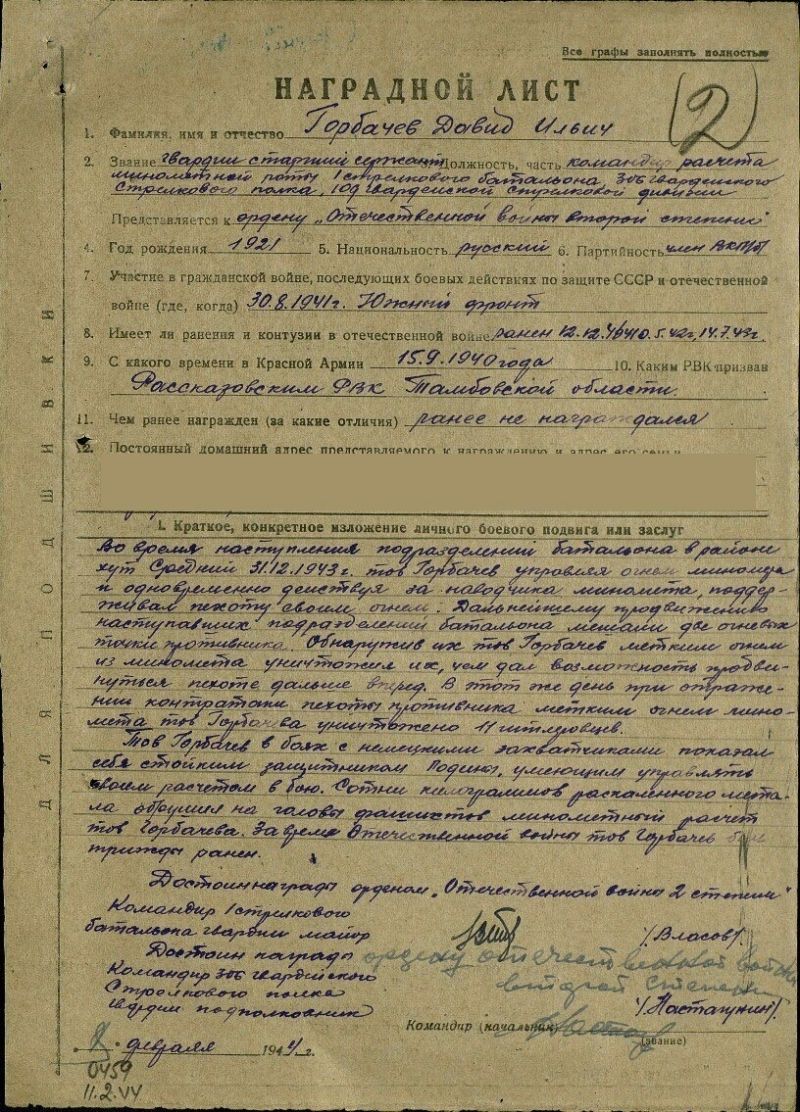 Все графы заполнять полностью
НАГРАДНОЙ ЛИСТ
2
1. Фамилия, имя и отчество Горбачев Давид Ильич
2. Звание гвардии старший сержант Должность, часть командир расчета
минометной роты 1 стрелкового батальона, 306 гвардейского
стрелкового полка, 109 гвардейской стрелковой дивизии
Представляется к ордену „Отечественной войны второй степени"
4. Год рождения 1921 5. Национальность русский 6. Партийность член ВКП/б/
7. Участие в гражданской войне, последующих боевых действиях по защите СССР и отечественной
войне (где, когда) 30.8.1941г. Южный фронт
8. Имеет ли ранения и контузии в отечественной войне ранен 12.12.41 10.5.42г, 14.7.43г.
9. С какого времени в Красной Армии 15.9.1940 года 10. Каким РВК призван
Рассказовским РВК Тамбовской области.
11. Чем ранее награжден (за какие отличия) ранее не награждался
12. Постоянный домашний адрес представляемого к награждению и адрес его семьи
ДЛЯ ПОДШИВКИ
I. Краткое, конкретное изложение личного боевого подвига или заслуг
Во время наступления подразделений батальона в районе
хут Средний 31.12.1943г. тов Горбачев управляя огнем миномета
и одновременно действуя за наводчика миномета, поддер-
живал пехоту своим огнем. Дальнейшему продвижению
наступавших подразделений батальона мешали две огневых
точки противника. Обнаружив их тов Горбачев метким огнем
из миномета уничтожил их, чем дал возможность продви-
нуться пехоте дальше вперед. В тот же день при отраже-
нии контратаки пехоты противника метким огнем мино-
мета тов Горбачева уничтожено 11 гитлеровцев.
Тов Горбачев в боях с немецкими захватчиками показал
себя стойким защитником Родины, умеющим управлять
своим расчетом в бою. Сотни килограммов раскаленного мета-
ла обрушил на головы фашистов минометный расчет
тов Горбачева. За время Отечественной войны тов Горбачев был
трижды ранен.
Достоин награды орденом „Отечественной войны 2 степени"
Командир 1 стрелкового
батальона гвардии майор /Власов/.
Достоин награды ордену отечественной войны
второй степени
Командир 306 гвардийского
Стрелкового полка
гвардии подполковник /Настагунин/.
Командир (начальник)
(звание)
8 февраля 1944 г.
0459
11.2.44